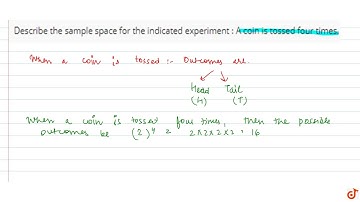 Describe the sample space for the indicated experiment : A coin is tossed four times.
When a coin is tossed :- Outcomes are.
Head Tail
(H) (T)
When a coin is tossed four times, then the possible
outcomes be (2)⁴ = 2×2×2×2 = 16